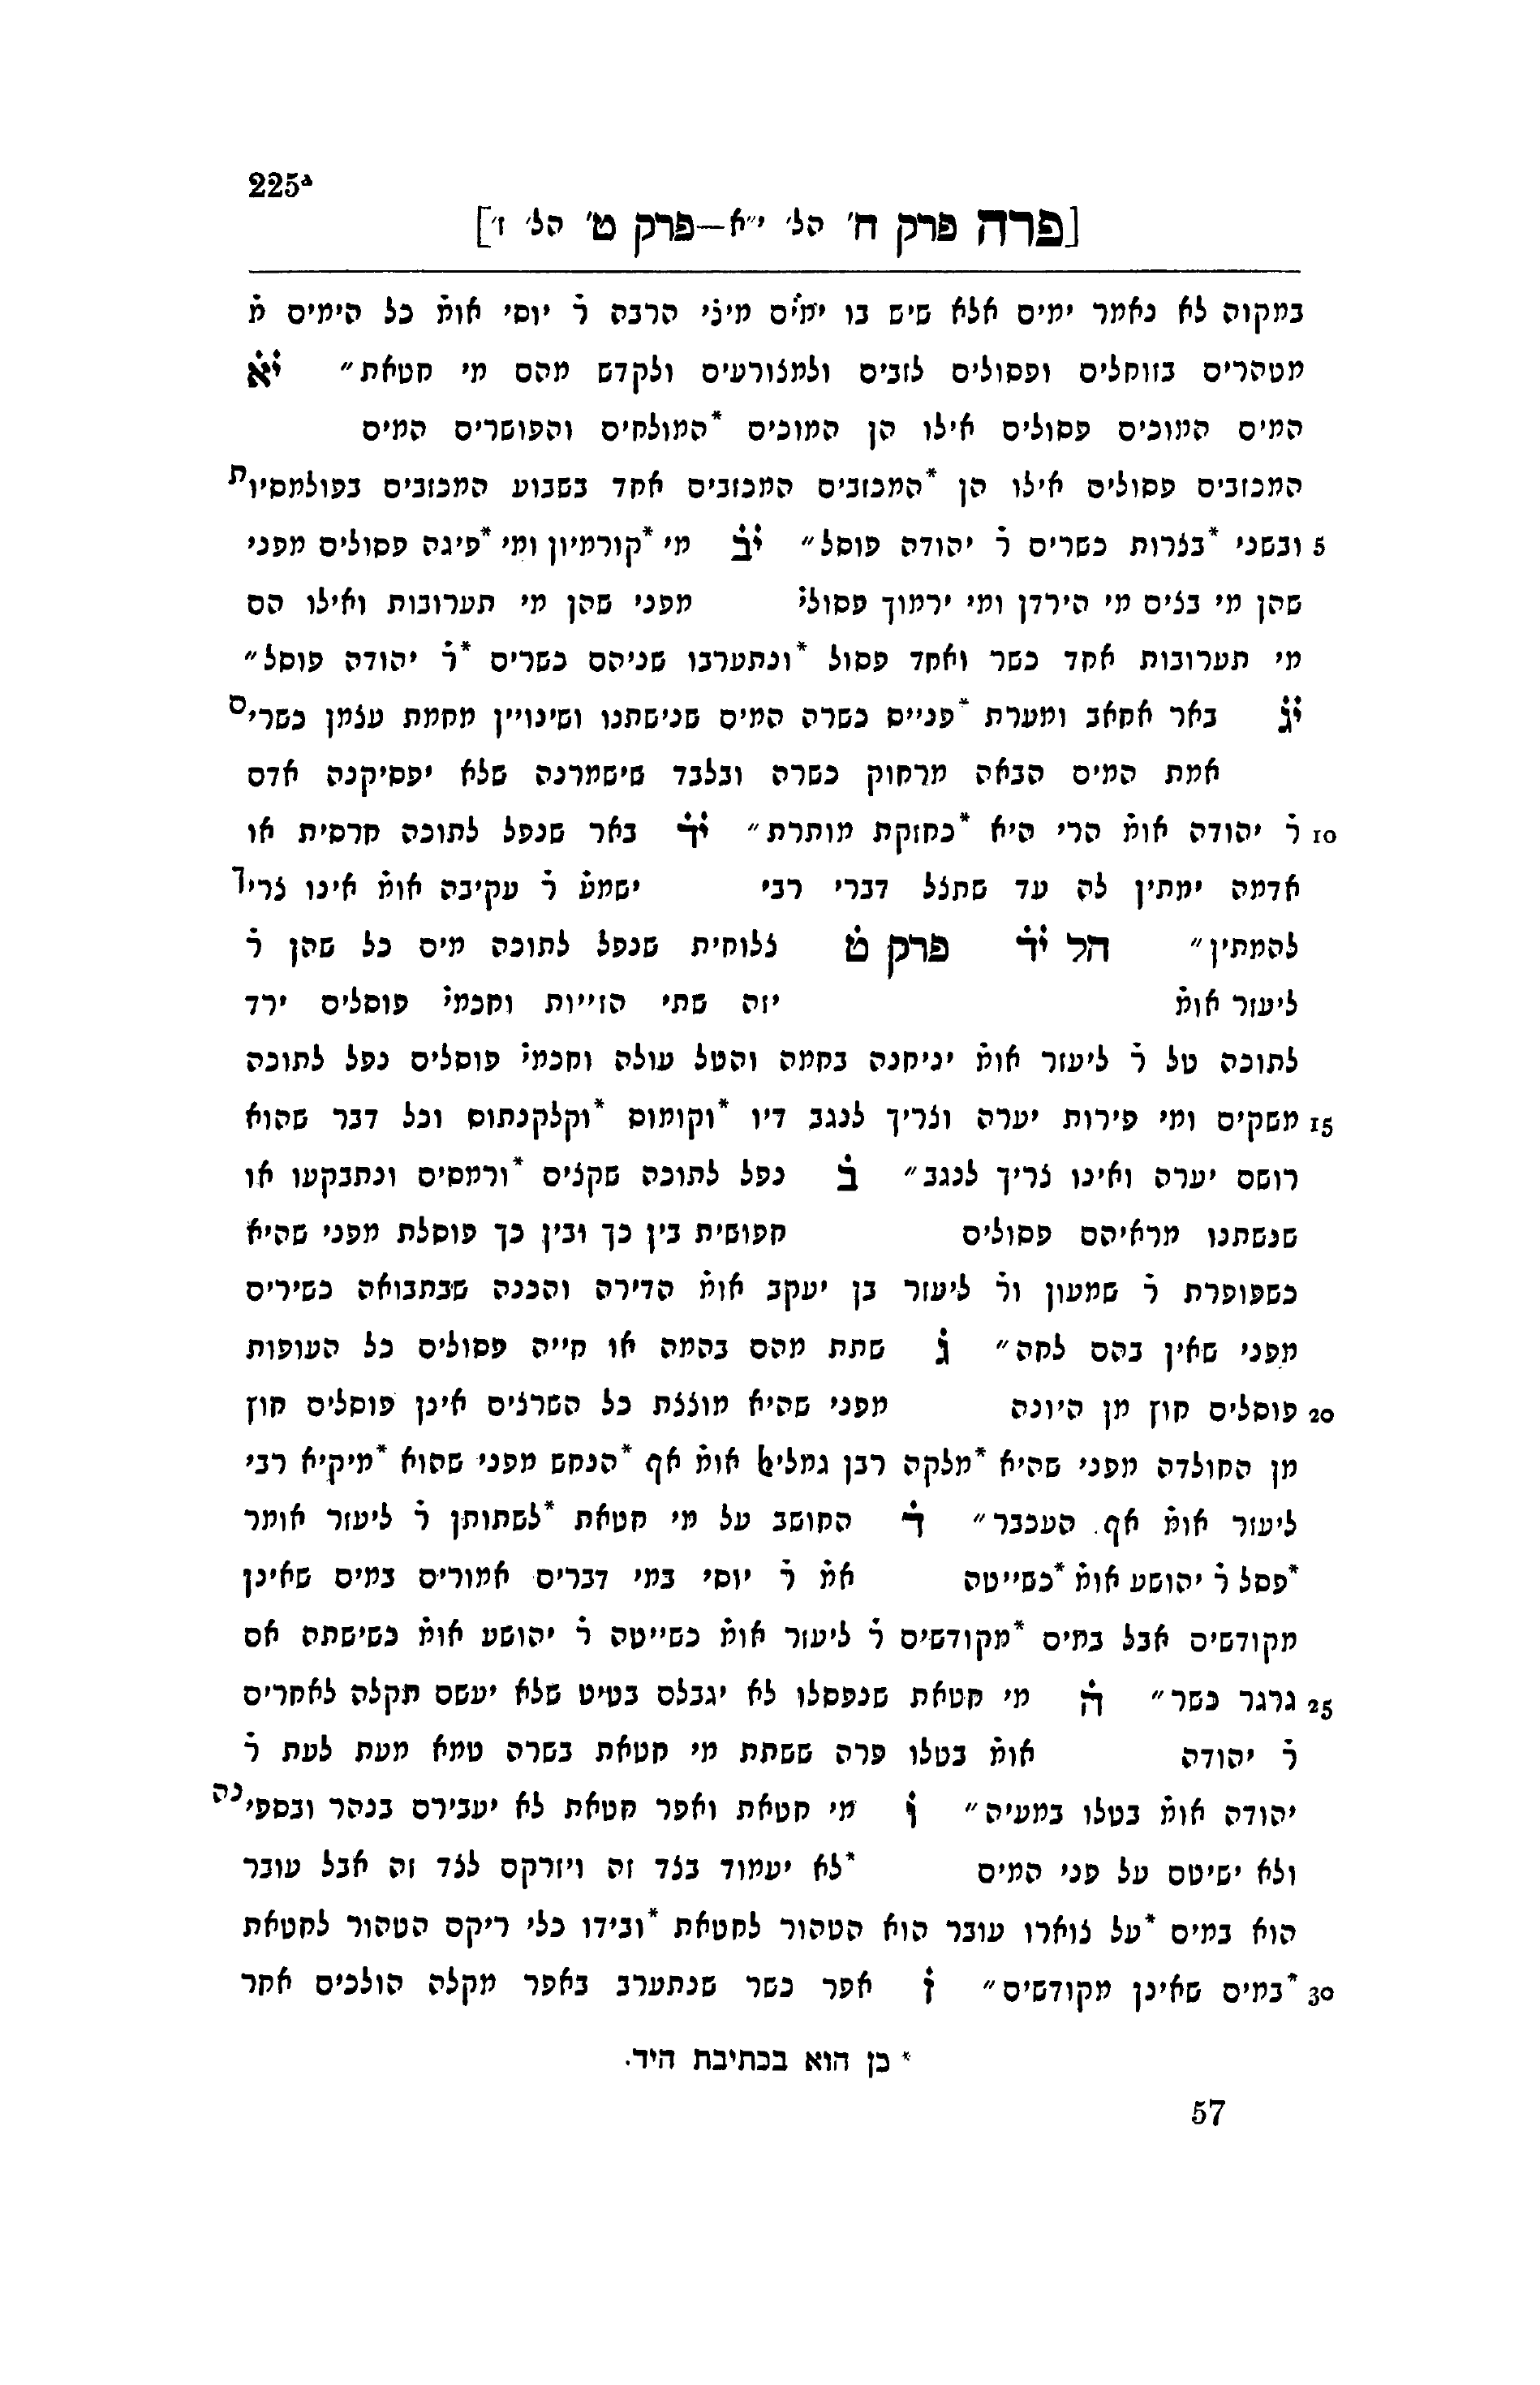 225ᵃ
[פרה פרק ח' הל' י"א—פרק ט' הל' ז']
במקוה לא נאמר ימים אלא שיש בו ימ̇י̇ם מיני̇ הרבה ר̇ יוסי אומ̇ כל הימים מ̇
מטהרים בזוחלים ופסולים לזבים ולמצורעים ולקדש מהם מי חטאת״ י̇א̇
המים המוכים פסולים אילו הן המוכים *המולחים והפושרים המים
המכזבים פסולים אילו הן *המכזבים המכזבים אחד בשבוע המכזבים בפולמסיות
5 ובשני *בצרות כשרים ר̇ יהודה פוסל״ י̇ב̇ מי *קורמיון ומי *פיגה פסולים מפני
שהן מי בצים מי הירדן ומי ירמוך פסולי̇ מפני שהן מי תערובות ואילו הם
מי תערובות אחד כשר ואחד פסול *ונתערבו שניהם כשרים *ר̇ יהודה פוסל״
י̇ג̇ באר אחאב ומערת *פנייס כשרה המים שנישתנו ושינויין מחמת עצמן כשרים
אמת המים הבאה מרחוק כשרה ובלבד שישמרנה שלא יפסיקנה אדם
10 ר̇ יהודה אומ̇ הרי היא *כחזקת מותרת״ י̇ד̇ באר שנפל לתוכה חרסית או
אדמה ימתין לה עד שתצל דברי רבי ישמע̇ ר̇ עקיבה אומ̇ אינו צריך
להמתין״ הל י̇ד̇ פרק ט̇ צלוחית שנפל לתוכה מים כל שהן ר̇
ליעזר אומ̇ יזה שתי הזייות וחכמי̇ פוסלים ירד
לתוכה טל ר̇ ליעזר אומ̇ יניחנה בחמה והטל עולה וחכמי̇ פוסלים נפל לתוכה
15 משקים ומי פירות יערה וצריך לנגב דיו *וקומוס *וקלקנתוס וכל דבר שהוא
רושם יערה ואינו צריך לנגב״ ב̇ נפל לתוכה שקצים *ורמסים ונתבקעו או
שנשתנו מראיהם פסולים חפושית בין כך ובין כך פוסלת מפני שהיא
כשפופרת ר̇ שמעון ור̇ ליעזר בן יעקב אומ̇ הדירה והכנה שבתבואה כשירים
מפני שאין בהם לחה״ ג̇ שתת מהם בהמה או חייה פסולים כל העופות
20 פוסלים חוץ מן היונה מפני שהיא מוצצת כל השרצים אינן פוסלים חוץ
מן החולדה מפני שהיא *מלקה רבן גמליאל אומ̇ אף *הנחש מפני שהוא *מיקיא רבי
ליעזר אומ̇ אף העכבר״ ד̇ החושב על מי חטאת *לשתותן ר̇ ליעזר אומר
*פסל ר̇ יהושע אומ̇ *כשייטה אמ̇ ר̇ יוסי במי דברים אמורים במים שאינן
מקודשים אבל במים *מקודשים ר̇ ליעזר אומ̇ כשייטה ר̇ יהושע אומ̇ כשישתה אם
25 גרגר כשר״ ה̇ מי חטאת שנפסלו לא יגבלם בטיט שלא יעשם תקלה לאחרים
ר̇ יהודה אומ̇ בטלו פרה ששתת מי חטאת בשרה טמא מעת לעת ר̇
יהודה אומ̇ בטלו במעיה״ ו̇ מי חטאת ואפר חטאת לא יעבירם בנהר ובספינה
ולא ישיטם על פני המים *לא יעמוד בצד זה ויזרקם לצד זה אבל עובר
הוא במים *על צוארו עובר הוא הטהור לחטאת *ובידו כלי ריקם הטהור לחטאת
30 *במים שאינן מקודשים״ ז̇ אפר כשר שנתערב באפר מקלה הולכים אחר
* כן הוא בכתיבת היד.
57